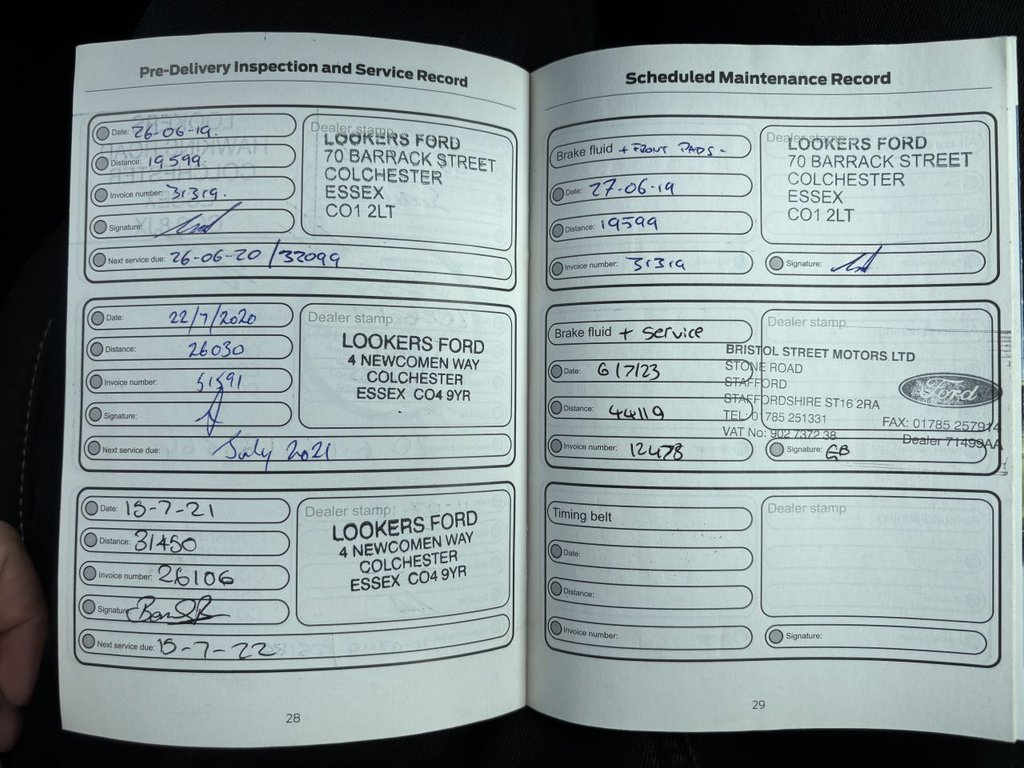 Pre-Delivery Inspection and Service Record
Date: 26-06-19.
Distance: 19599.
Invoice number: 31319.
Signature:
Next service due: 26-06-20 / 32099
Dealer stamp
LOOKERS FORD
70 BARRACK STREET
COLCHESTER
ESSEX
CO1 2LT
Date: 22/7/2020
Distance: 26030
Invoice number: 51591
Signature:
Next service due: July 2021
Dealer stamp
LOOKERS FORD
4 NEWCOMEN WAY
COLCHESTER
ESSEX CO4 9YR
Date: 15-7-21
Distance: 31450
Invoice number: 26106
Signature:
Next service due: 15-7-22
Dealer stamp
LOOKERS FORD
4 NEWCOMEN WAY
COLCHESTER
ESSEX CO4 9YR
28
Scheduled Maintenance Record
Brake fluid + FRONT PADS -
Date: 27-06-19
Distance: 19599
Invoice number: 31319
Dealer stamp
LOOKERS FORD
70 BARRACK STREET
COLCHESTER
ESSEX
CO1 2LT
Signature:
Brake fluid + Service
Date: 6/7/23
Distance: 44119
Invoice number: 12478
Dealer stamp
BRISTOL STREET MOTORS LTD
STONE ROAD
STAFFORD
STAFFORDSHIRE ST16 2RA
TEL: 01785 251331
FAX: 01785 257914
VAT No: 902 7372 38
Dealer 71499AA
Ford
Signature: GB
Timing belt
Date:
Distance:
Invoice number:
Dealer stamp
Signature:
29